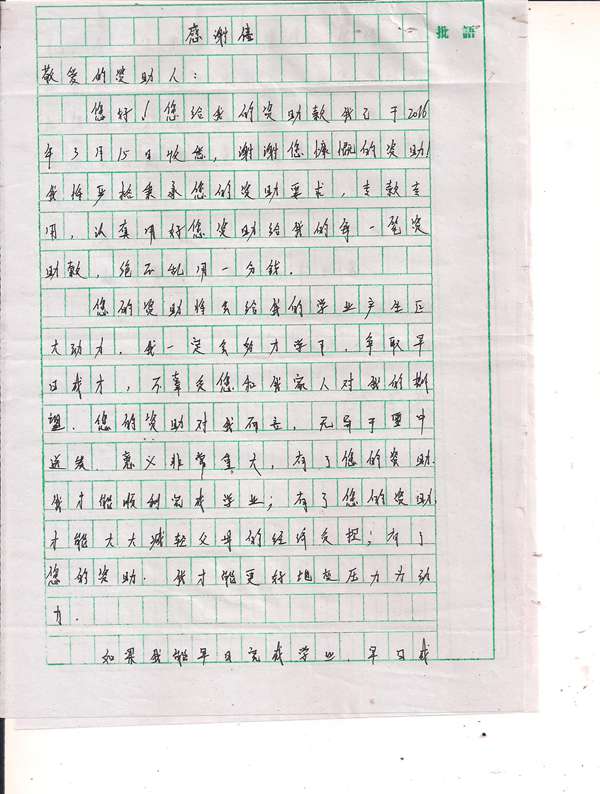 感谢信
批語
敬爱的资助人:
您好!您给我的资助款我已于2016
年3月15日收悉,谢谢您慷慨的资助!
我将严格秉承您的资助要求,专款专
用,认真用好您资助给我的每一笔资
助款,绝不乱用一分钱.
您的资助将会给我的学业产生巨
大动力,我一定会努力学习,争取早
日成才,不辜负您和我家人对我的期
望.您的资助对我而言,无异于雪中
送炭,意义非常重大,有了您的资助.
我才能顺利完成学业;有了您的资助.
才能大大减轻父母的经济负担;有了
您的资助.我才能更好地变压力为动
力.
如果我能早日完成学业,早日成